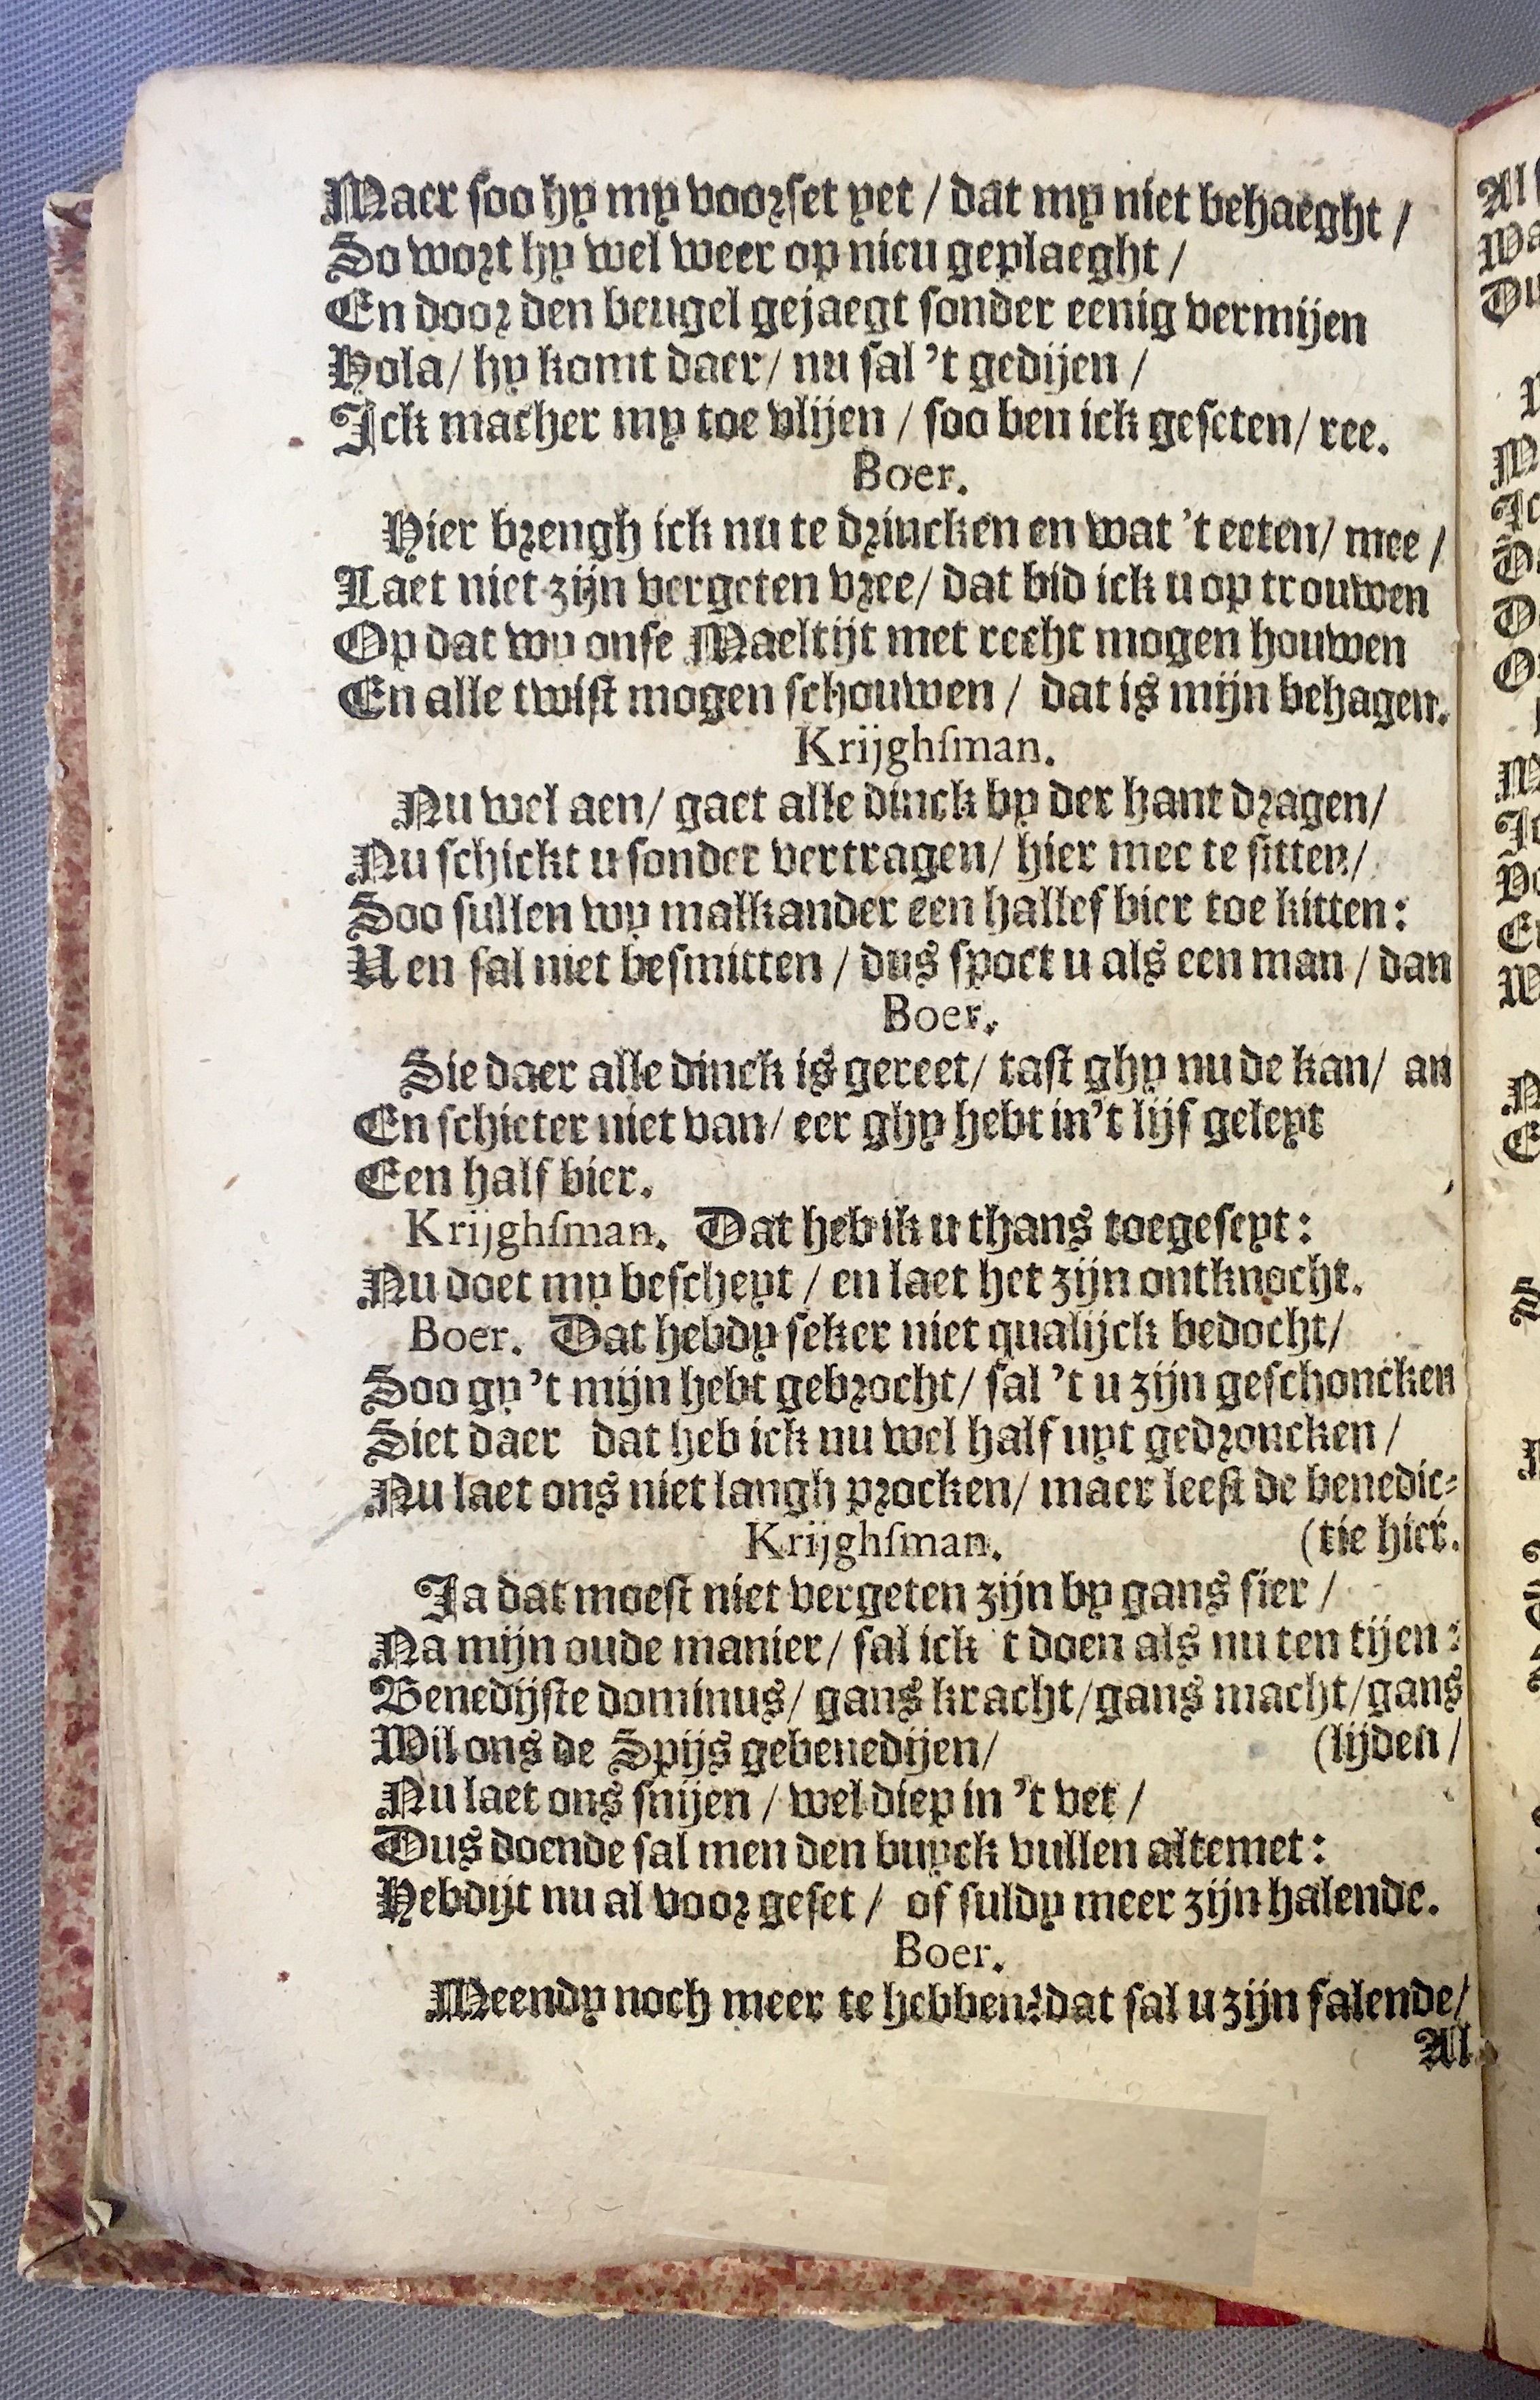 Maer soo hy my voorset yet / dat my niet behaeght /
So wort hy wel weer op nieu geplaeght /
En door den beugel gejaegt sonder eenig vermijen
Hola / hy komt daer / nu sal 't gedijen /
Ick macher my toe vlijen / soo ben ick geseten / ree.
Boer.
Hier brengh ick nu te drincken en wat 't eeten / mee /
Laet niet zijn vergeten vree / dat bid ick u op trouwen
Op dat wy onse Maeltijt met recht mogen houwen
En alle twist mogen schouwen / dat is mijn behagen.
Krijghsman.
Nu wel aen / gaet alle dinck by der hant dragen /
Nu schickt u sonder vertragen / hier mee te sitten /
Soo sullen wy malkander een hallef bier toe kitten :
U en sal niet besmitten / dus spoet u als een man / dan
Boer.
Sie daer alle dinck is gereet / tast ghy nu de kan / an
En schieter niet van / eer ghy hebt in't lijf geleyt
Een half bier.
Krijghsman. Dat heb ik u thans toegeseyt :
Nu doet my bescheyt / en laet het zijn ontknocht.
Boer. Dat hebdy seker niet qualijck bedocht /
Soo gy 't mijn hebt gebrocht / sal 't u zijn geschoncken
Siet daer dat heb ick nu wel half uyt gedroncken /
Nu laet ons niet langh procken / maer leest de benedic-
Krijghsman. (tie hier.
Ja dat moest niet vergeten zijn by gans sier /
Na mijn oude manier / sal ick 't doen als nu ten tijen :
Benedijste dominus / gans kracht / gans macht / gans
Wil ons de Spijs gebenedijen / (lijden /
Nu laet ons snijen / wel diep in 't vet /
Dus doende sal men den buyck vullen altemet :
Hebdijt nu al voor geset / of suldy meer zijn halende.
Boer.
Meendy noch meer te hebben? dat sal u zijn falende /
Al